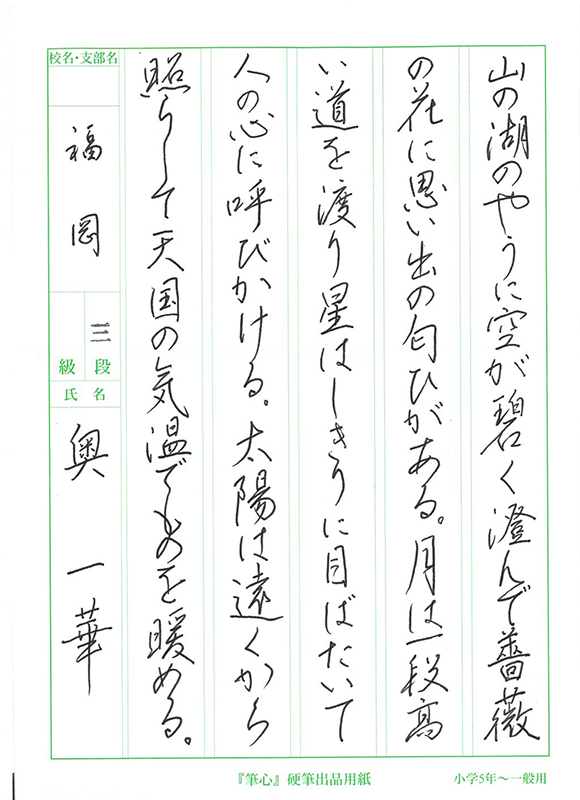 山の湖のやうに空が碧く澄んで薔薇
の花に思い出の匂ひがある。月は一段高
い道を渡り星はしきりに目ばたいて
人の心に呼びかける。太陽は遠くから
照らして天国の気温でものを暖める。
校名・支部名
福岡
三
段
級
氏名
奥一華
『筆心』硬筆出品用紙
小学5年～一般用